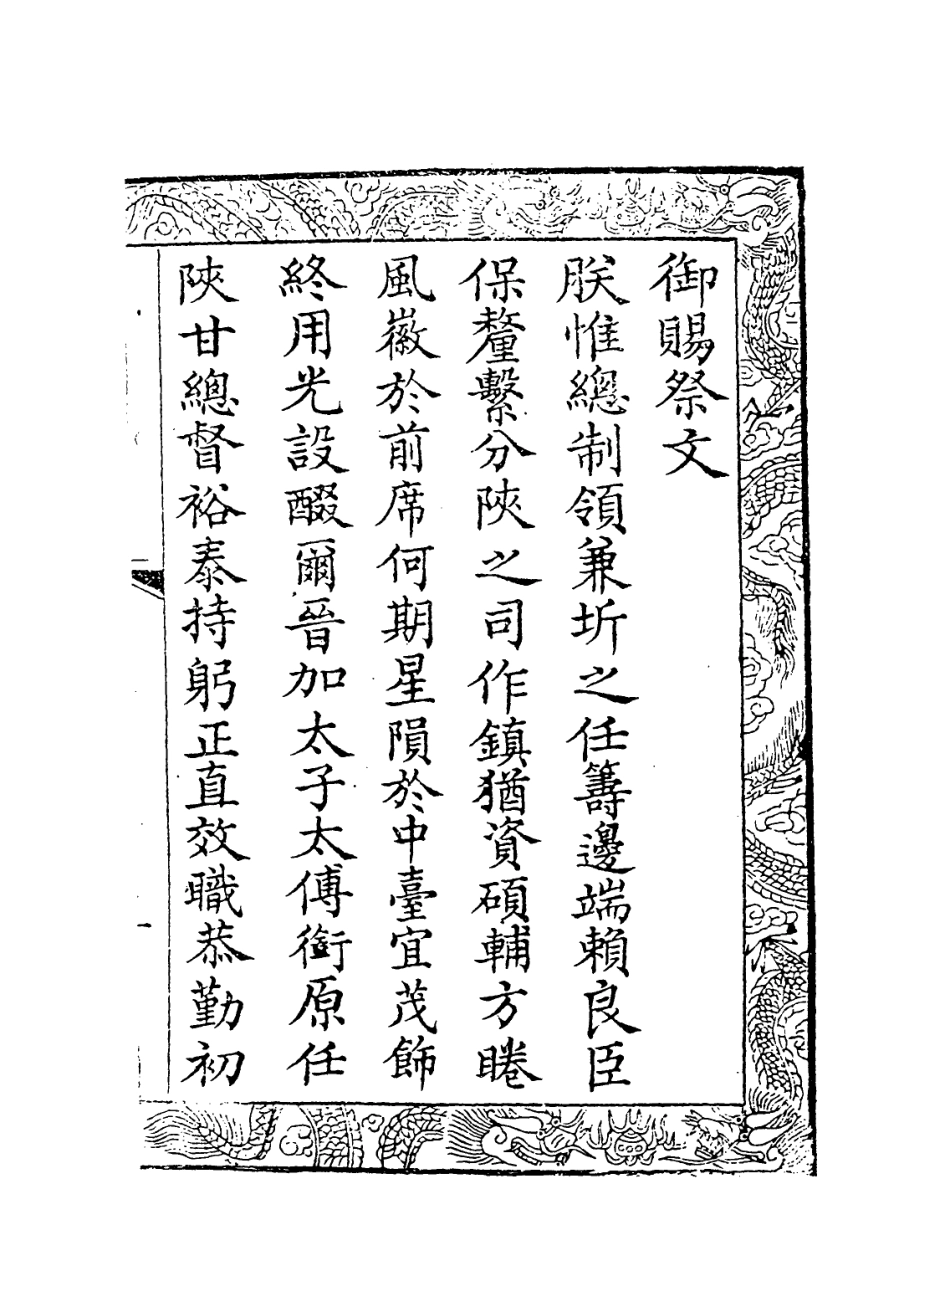 御賜祭文
朕惟總制領兼圻之任籌邊端賴良臣
保釐繫分陜之司作鎮猶資碩輔方睠
風徽於前席何期星隕於中臺宜茂飾
終用光設醊爾晉加太子太傅銜原任
陜甘總督裕泰持躬正直效職恭勤初